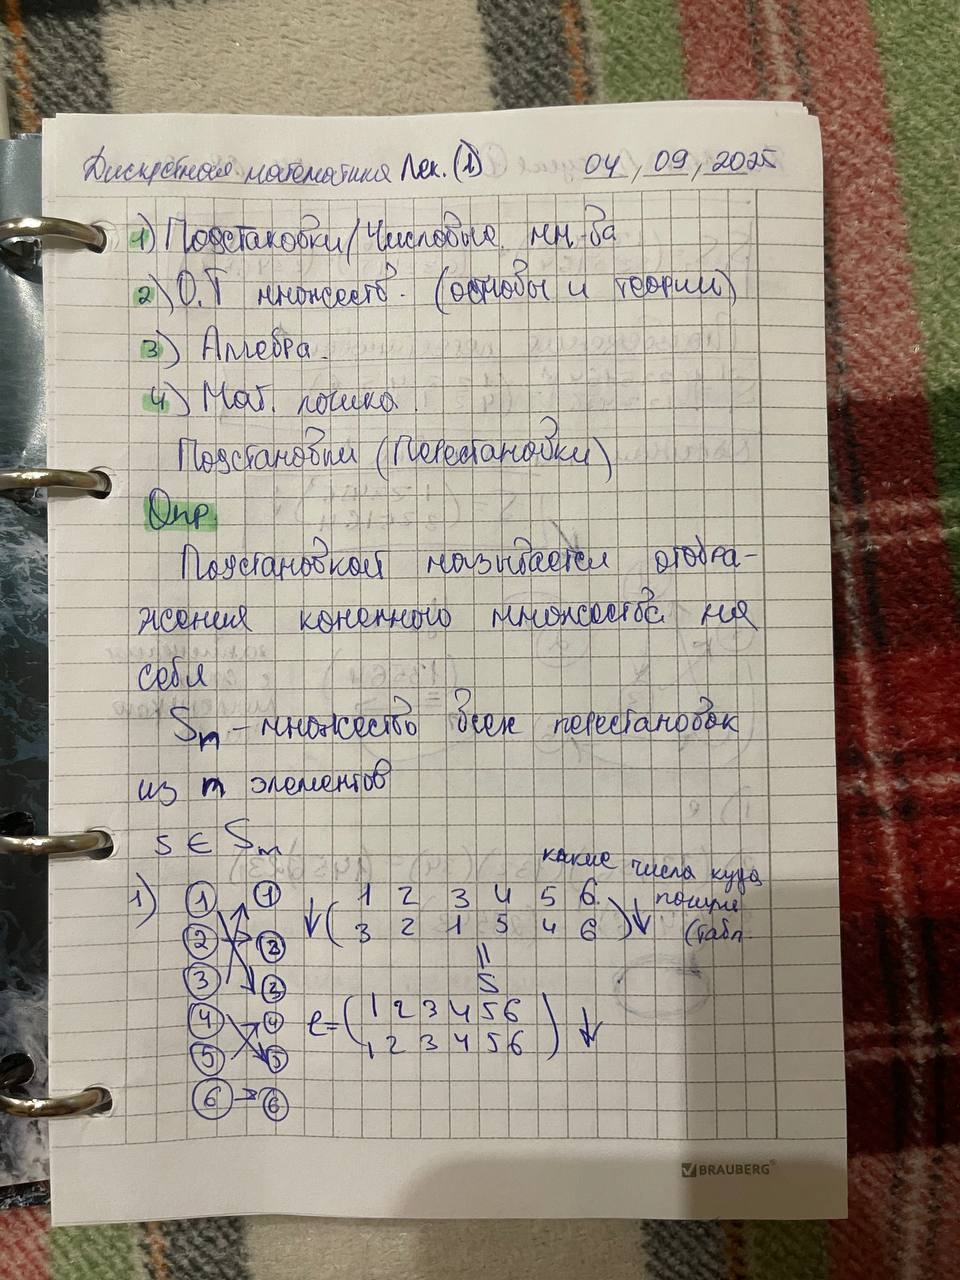 Дискретная математика Лек. (1) 04, 09, 2025
1) Подстановки/Числовые мн-ва
2) О.Т множеств. (основы и теории)
3) Алгебра.
4) Мат. логика
Подстановки (Перестановки)
Опр
Подстановкой называется отобра-
жения конечного множества на
себя
Sn - множество всех перестановок
из n элементов
S ∈ Sn
какие числа куда
пошли
(табл.
1) 1 1 ↓ ( 1 2 3 4 5 6 ) ↓
2 2 3 2 1 5 4 6
3 3 =
S
4 4 e = ( 1 2 3 4 5 6 ) ↓
5 5 1 2 3 4 5 6
6 → 6
BRAUBERG®